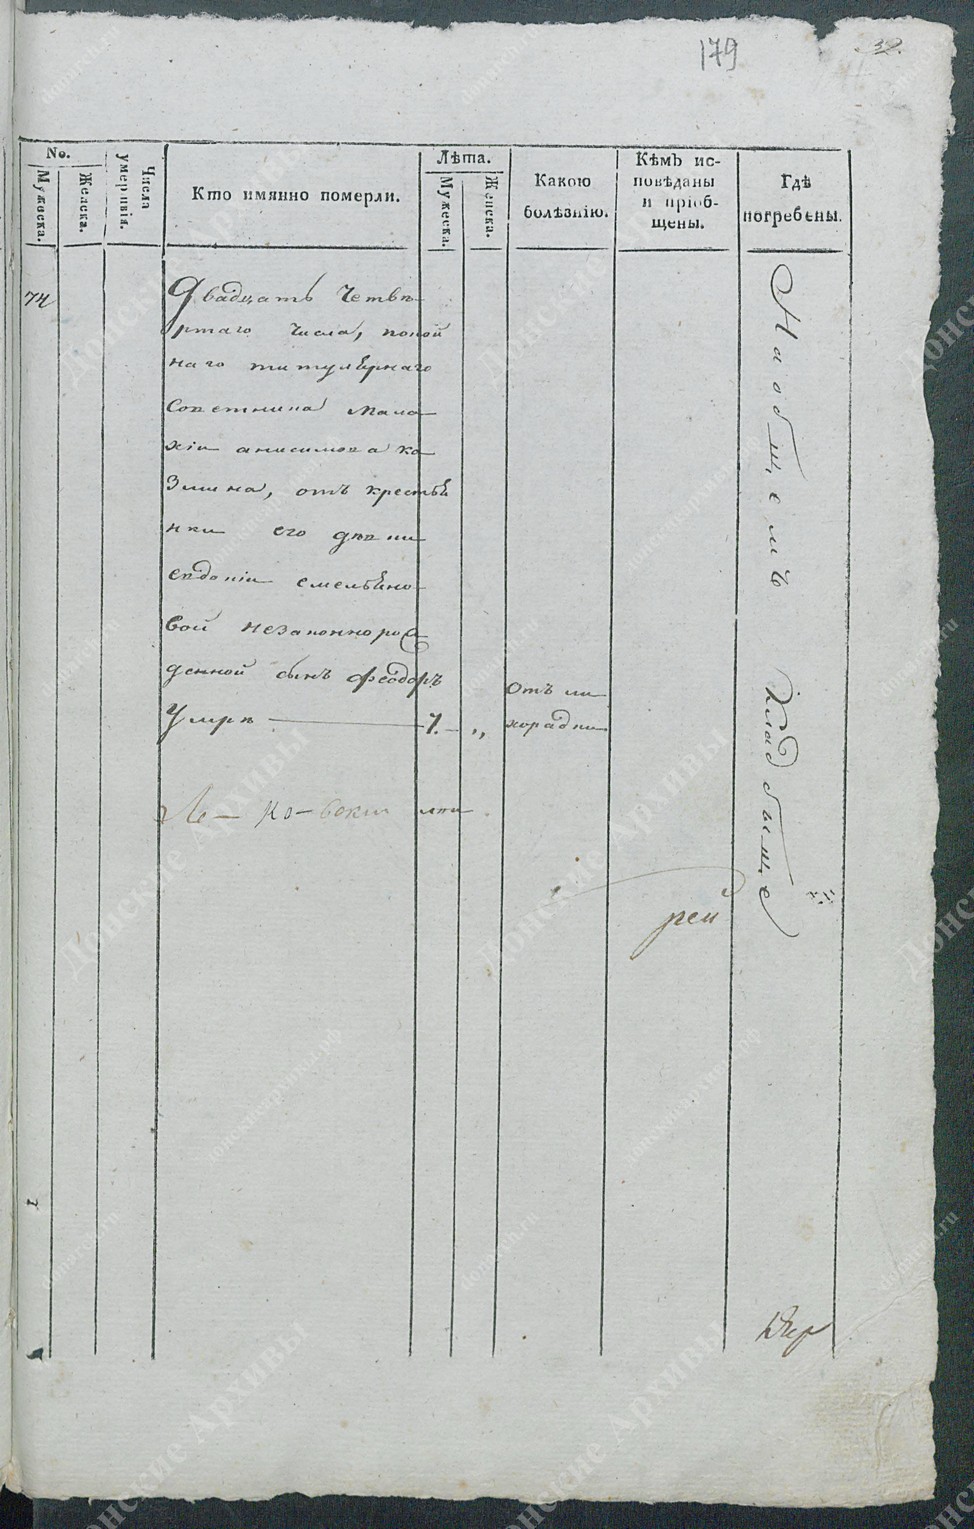 179
32.
No.
Мужеска.
Женска.
Числа умершія.
Кто имянно померли.
Лѣта.
Мужеска.
Женска.
Какою болѣзнію.
Кѣмъ ис-
повѣданы
и пріоб-
щены.
Гдѣ
погребены.
74
Двадцать Четве
ртаго Числа, покой
наго титулярнаго
Советника Мала
хіи анисимова ка
змина, отъ крестья
нки его девки
евдокіи емельяно
вой незаконнорож
денной сынъ феодоръ
Умре — 1. — „
отъ ли
хорадки
На общемъ кладбыще
рей